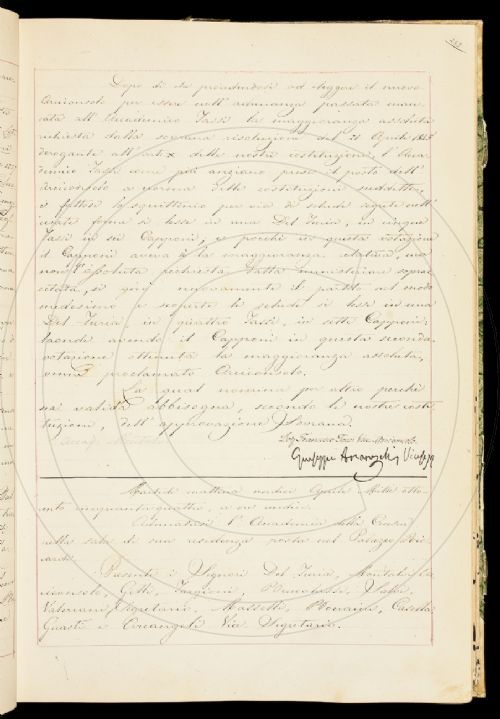 Dopo di che procedendosi ad eleggere il nuovo
Arciconsolo per esser nell' adunanza passata mancata all' Accademico Tassi la maggioranza assoluta
richiesta dalla sovrana risoluzione del 21 Aprile
derogante all' art. X delle nostre costituzioni, l' Accademico Tassi come più anziano prese il posto dell'
Arciconsolo a norma delle costituzioni suddette,
e fattosi lo squittinio per via di schede segrete nell'
usata forma si lesse in una Del Furia, in cinque
Tassi in sei Capponi, e poichè in questa votazione
il Capponi aveva la maggioranza relativa, ma
non l'assoluta richiesta dalla ministeriale sopracitata, si girò nuovamente il partito nel modo
medesimo e scoperte le schede si lesse in una
Del Furia, in quattro Tassi, in sette Capponi,
laonde avendo il Capponi in questa seconda
votazione ottenuta la maggioranza assoluta,
venne proclamato Arciconsolo.
La qual nomina per altro perchè
sia valida abbisogna, secondo le nostre costituzioni, dell' approvazione Sovrana.
Francesco Tassi Vice Arciconsolo
Giuseppe Arcangeli Vice
Martedì mattina undici Aprile Mille ottocento cinquantaquattro, a ore undici.
Adunatasi l' Accademia della Crusca
nelle sale di sua residenza poste nel Palazzo Riccardi
Presenti i Signori Del Furia, Montalvi
Arciconsolo, Gelli, Targioni,
Valeriani, Segretario, Masselli,
Guasti e Arcangeli Vice Segretario.